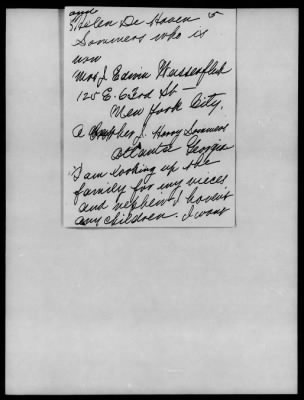 and
Helen De Haven
Sommers who is
now
Mrs J. Edwin Wasserfluh
125 E. 63rd St —
New York City.
a Brother, J. Harry Sommers
Atlanta Georgia
I am looking up the
family for my nieces
and nephew I haven't
any children. I want